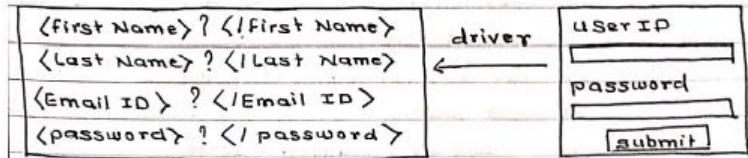 <first Name> ? </first Name>
<Last Name> ? </Last Name>
<Email ID> ? </Email ID>
<password> ? </ password>
driver
USer ID
password
submit